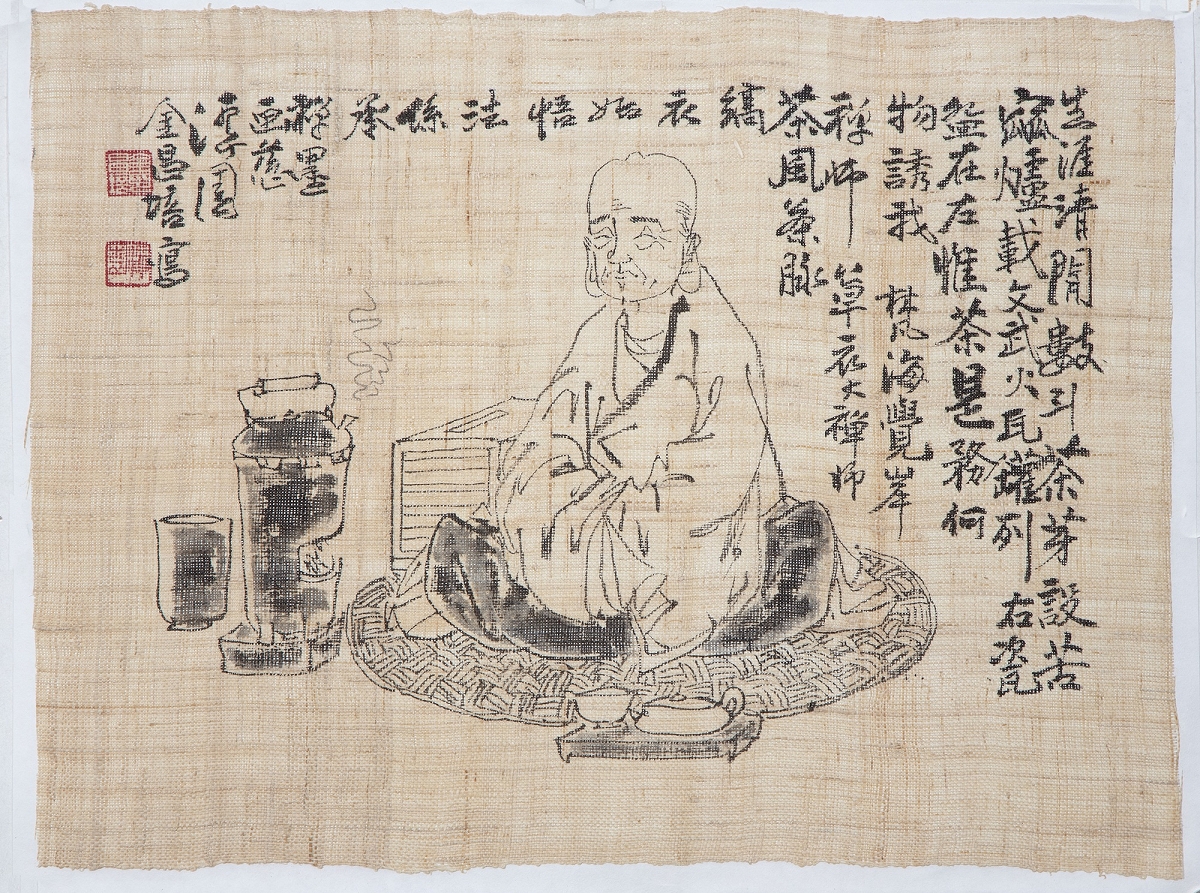 生涯清閒數斗茶芽設苦
窳爐載文武火瓦罐列右瓷
盌在左惟茶是務何
物誘我 梵海覺岸
禪師 草衣大禪師
茶風茶脈
縞衣始悟法係承
禪墨
画
潭園
金昌培寫